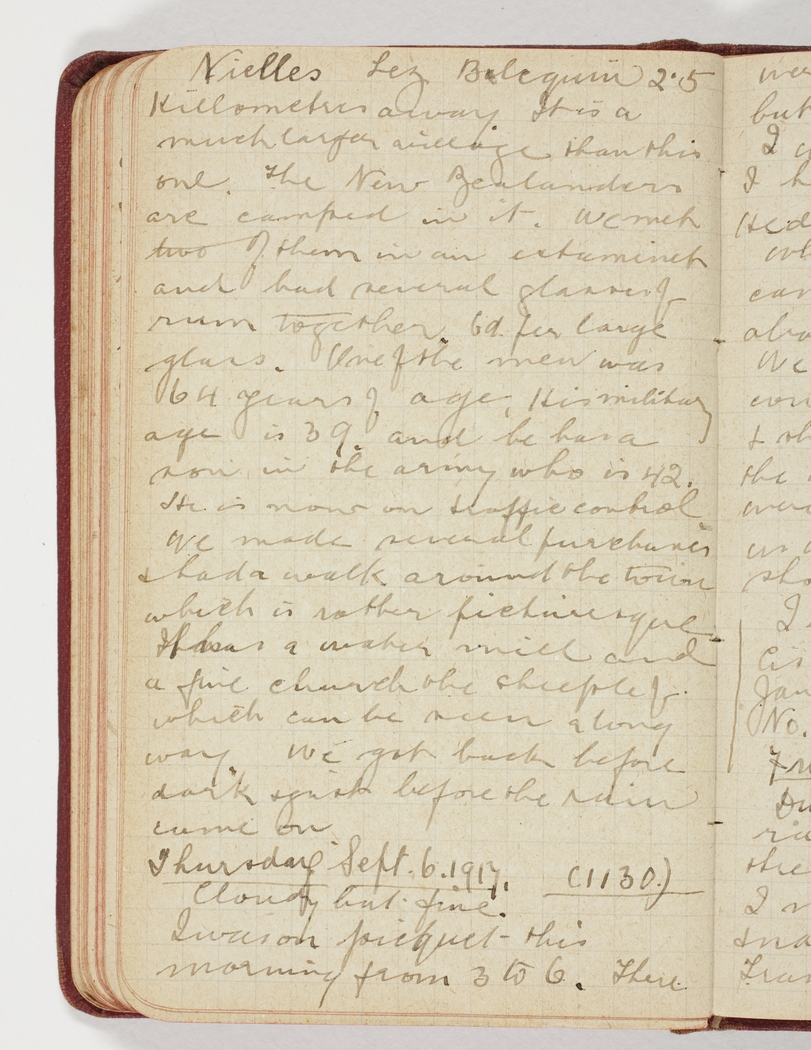 Nielles Lez Blequin 2.5
Killometres away It is a
much larger village than this
one. The New Zealanders
are camped in it. We met
two of them in an estaminet
and had several glasses of
rum together. 6d. per large
glass. One of the men was
64 years of age. His military
age is 39. and he has a
son in the army who is 42.
He is now on traffic control
We made several purchases
& had a walk around the town
which is rather picturesque.
It has a water mill and
a fine church the steeple of
which can be seen a long
way. We got back before
dark & just before the rain
came on
Thursday Sept. 6. 1917. (1130.)
Cloudy but fine.
I was on picquet this
morning from 3 to 6. There
but
I
I h
the
We
& sh
the
I
No.
the